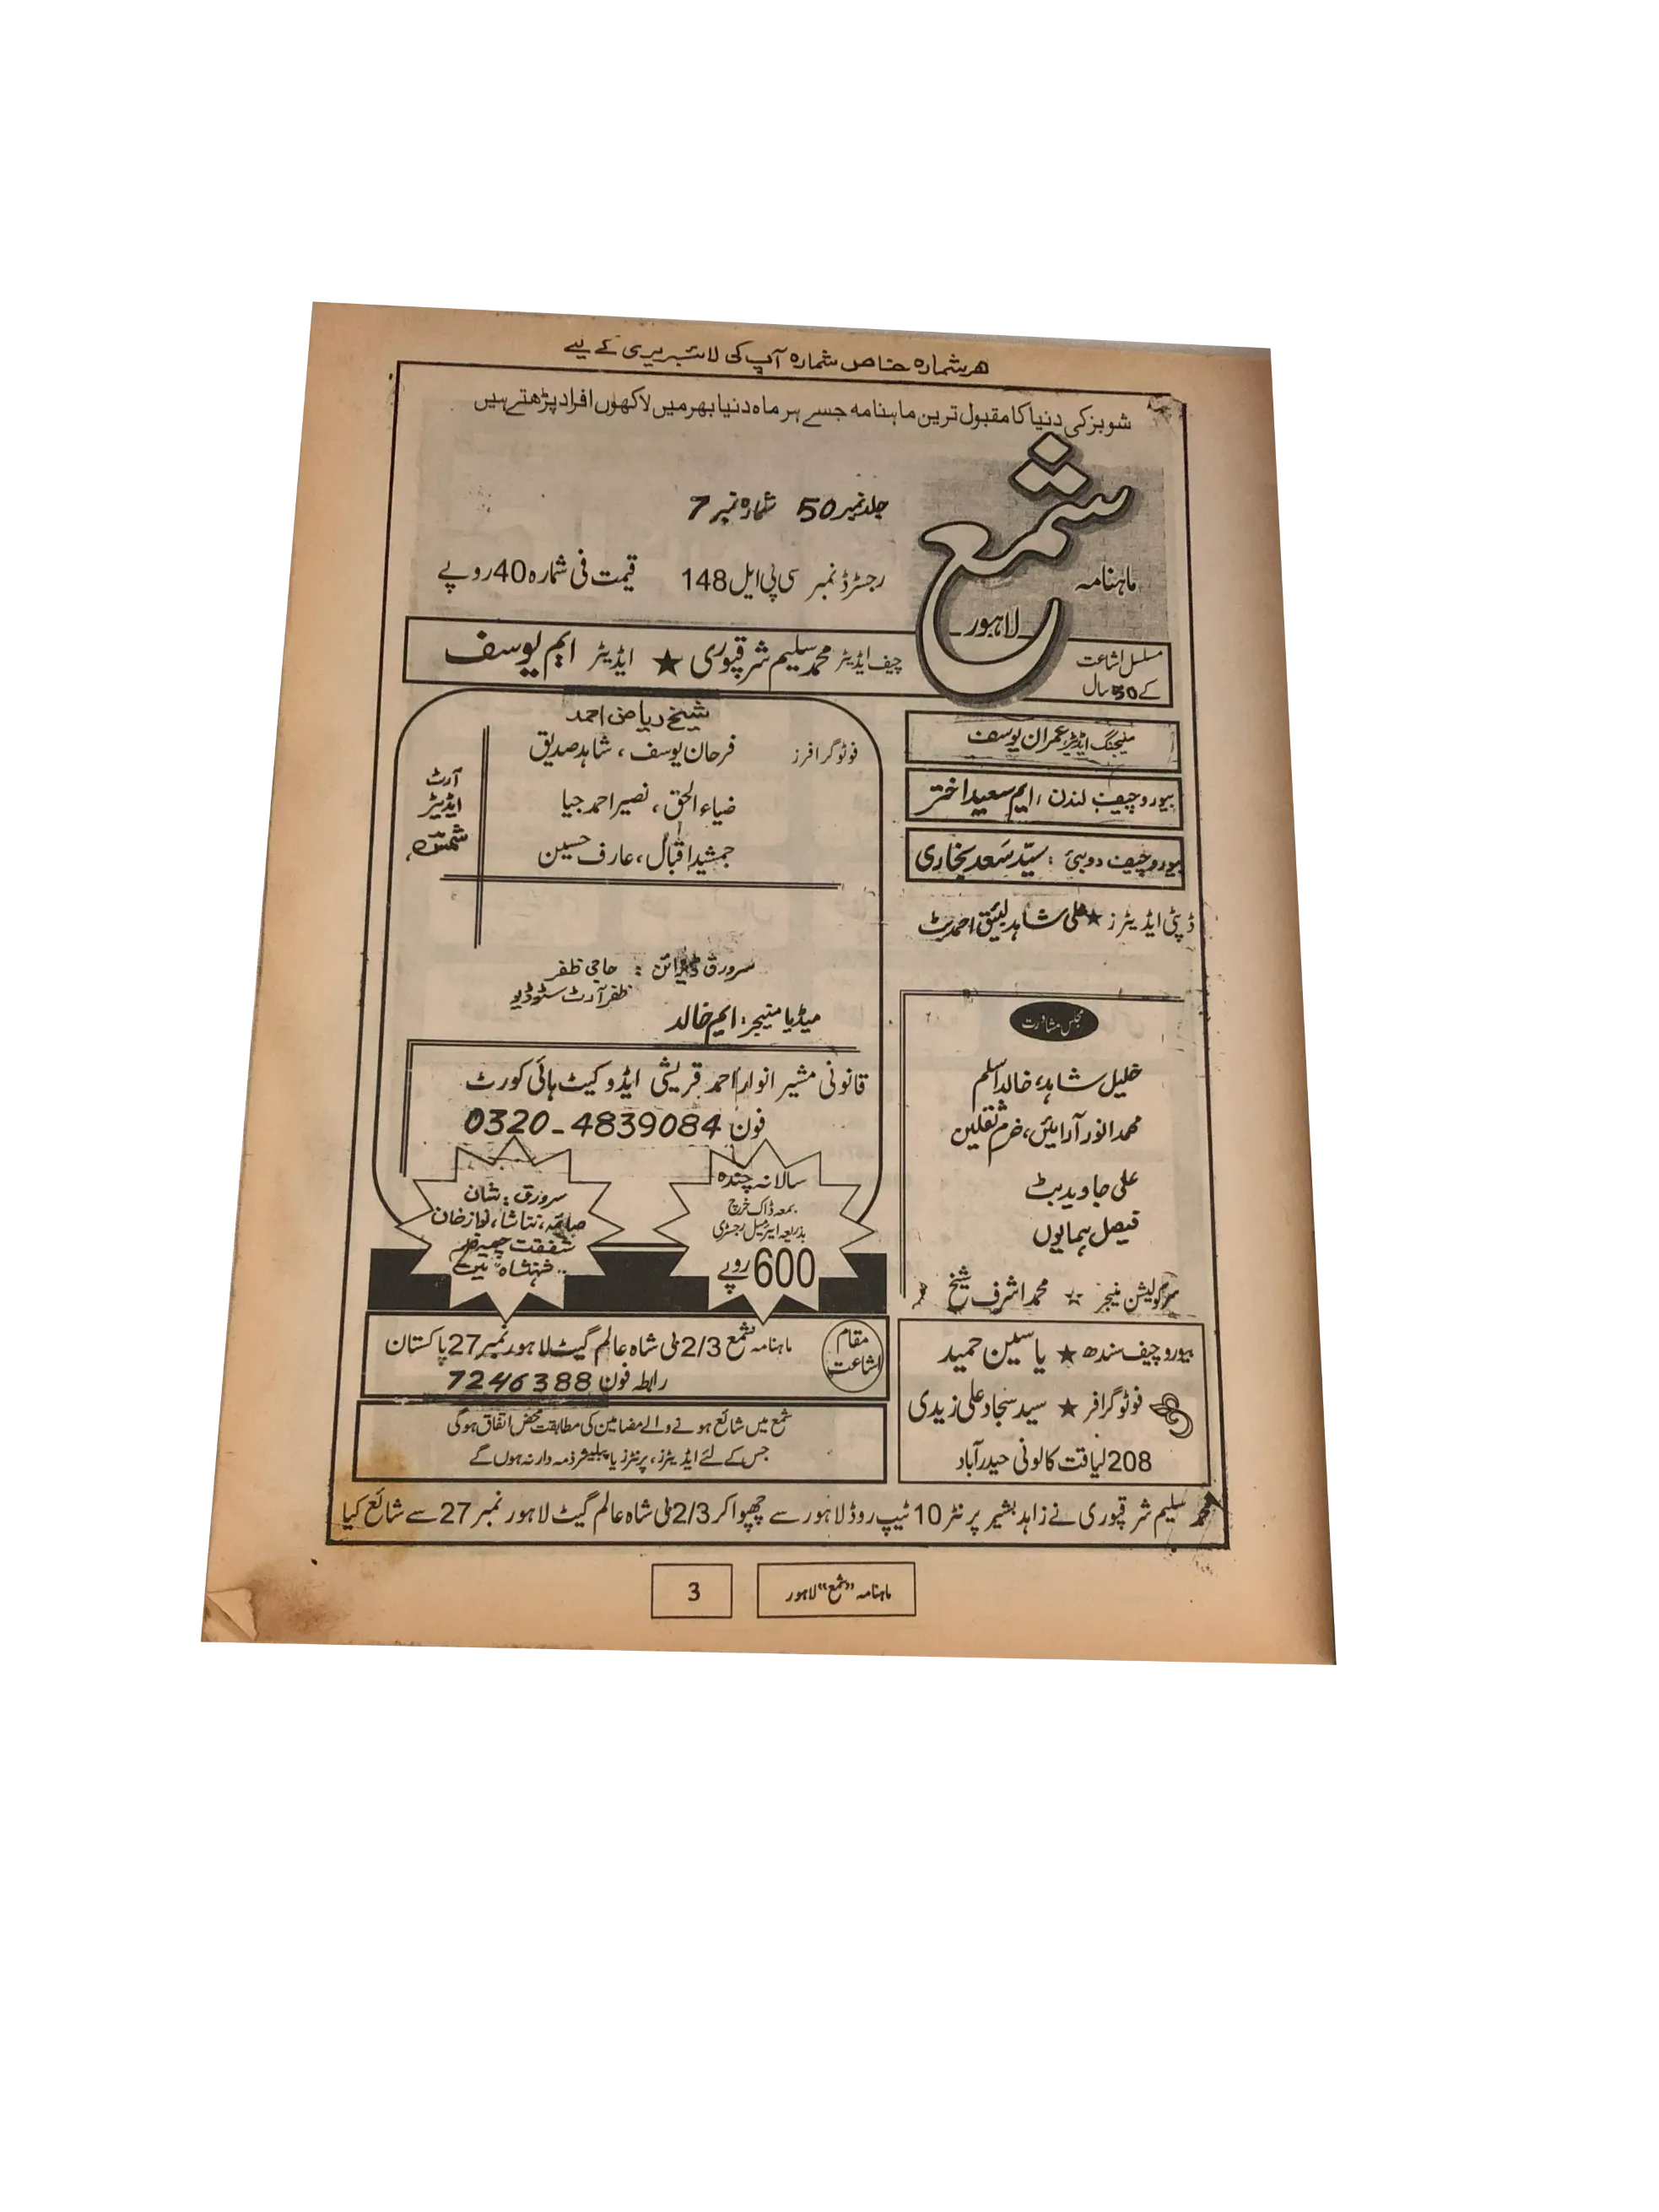 ھر شمارہ خاص شمارہ آپ کی لائبریری کے لیے
شوبز کی دنیا کا مقبول ترین ماہنامہ جسے ہر ماہ دنیا بھر میں لاکھوں افراد پڑھتے ہیں
ماہنامہ
شمع
لاہور
جلد نمبر 50 شمارہ نمبر 7
رجسٹرڈ نمبر سی پی ایل 148 قیمت فی شمارہ 40 روپے
مسلسل اشاعت
کے 50 سال
چیف ایڈیٹر محمد سلیم شرقپوری ★ ایڈیٹر ایم یوسف
منیجنگ ایڈیٹر عمران یوسف
بیورو چیف لندن : ایم سعید اختر
بیورو چیف دوبئی : سیّد سَعد بخاری
ڈپٹی ایڈیٹرز ★ علی شاہد لئیق احمد بٹ
مجلس مشاورت
خلیل شاہد، خالد اسلم
محمد انور آرائیں، خرم ثقلین
علی جاوید بٹ
فیصل ہمایوں
سرکولیشن منیجر ☆ محمد اشرف شیخ
بیورو چیف سندھ ★ یاسین حمید
فوٹوگرافر ★ سید سجاد علی زیدی
208 لیاقت کالونی حیدرآباد
شیخ ریاض احمد
فوٹوگرافرز فرحان یوسف ، شاہد صدیق
ضیاء الحق ، نصیر احمد جیا
جمشید اقبال ، عارف حسین
آرٹ
ایڈیٹر
شمسؔ
سرورق ڈیزائن : حاجی ظفر
ظفر آرٹ سٹوڈیو
میڈیا منیجر : ایم خالد
قانونی مشیر انوار احمد قریشی ایڈوکیٹ ہائی کورٹ
فون 0320-4839084
سالانہ چندہ
بمعہ ڈاک خرچ
بذریعہ ائیر میل رجسٹری
600 روپے
سرورق : شان
صائمہ، نتاشا، نواز خان
شفقت چیمہ
"شہنشاہ" میں
مقام
اشاعت
ماہنامہ شمع 2/3 بلی شاہ عالم گیٹ لاہور نمبر 27 پاکستان
رابطہ فون 7246388
شمع میں شائع ہونے والے مضامین کی مطابقت محض اتفاق ہوگی
جس کے لئے ایڈیٹرز، پرنٹرز یا پبلیشر ذمہ دار نہ ہوں گے
محمد سلیم شرقپوری نے زاہد بشیر پرنٹر 10 ٹیپ روڈ لاہور سے چھپوا کر 2/3 بلی شاہ عالم گیٹ لاہور نمبر 27 سے شائع کیا
ماہنامہ "شمع" لاہور
3